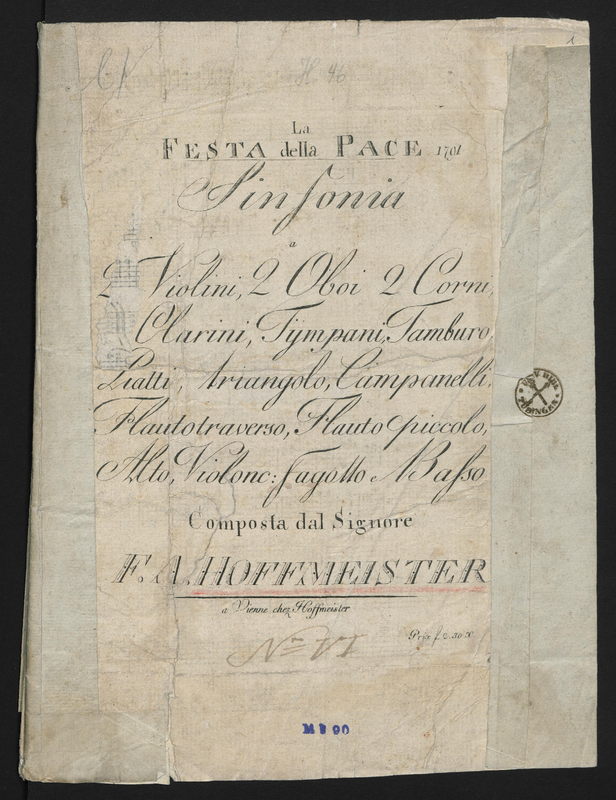 1
H. 46
La
FESTA della PACE 1791
Sinfonia
a
2 Violini, 2 Oboi 2 Corni,
Clarini, Tÿmpani, Tamburo,
Piatti, triangolo, Campanelli,
Flautotraverso, Flauto piccolo,
Alto, Violonc: Fagotto e Basso
UNIV BIBL
TÜBINGEN
Composta dal Signore
F. A. HOFFMEISTER
a Vienne chez Hoffmeister
Prix f. 2. 30 X
M b 90